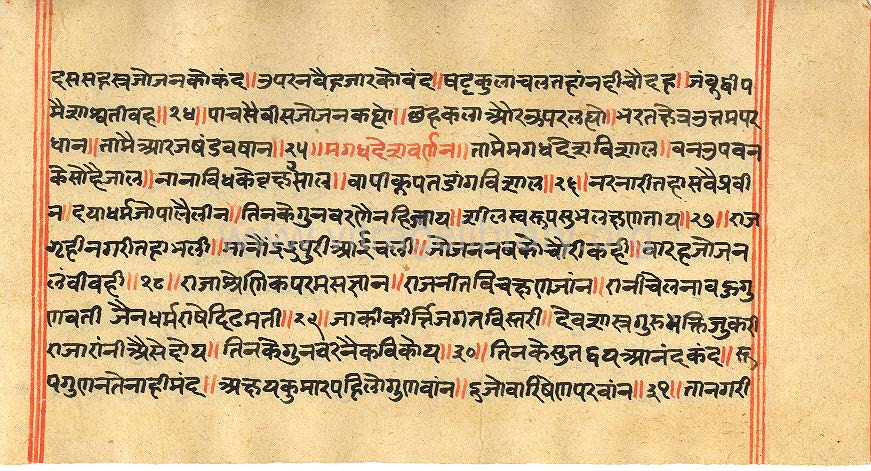 दससहस्रजोजनकोकंद॥उपरनवैहजारकोवंद॥षट्कुलाचलतहांनहीचौदह॥जंबुद्वीप
मैशाश्वतीवह॥२४॥पाचसैवीसजोजनकह्यो॥छहकलाऔरउपरलह्यो॥भरतक्षेत्रउत्तमपर
धान॥तामैआरजषंडवषान॥२५॥मगधदेशवर्णन॥तामेमगधदेशविशाल॥वनउपवन
केसोहैजाल॥नानाविधकेवृक्षसाल॥वापीकूपतडांगविशाल॥२६॥नरनारीतहासवैप्रवी
न॥दयाधर्मजोपालैलीन॥तिनकैगुनवरणेनहिजाय॥शीलस्वरूपसुभलक्षणताय॥२७॥राज
गृहीनगरीतहाभली॥मानौइंद्रपुरीआइचली॥जोजननवकीचौरीकही॥वारहजोजन
लंवीवही॥२८॥राजाश्रेणिकपरमसज्ञान॥राजनीतविचक्षणजांन॥रानीचेलनावहुगु
णवती जैनधर्मराषेदिढमती॥२९॥जाकीकीर्त्तिजगतविस्तरी॥देवशास्त्रगुरुभक्तिजुकरी
राजारांनीऐसेहोय॥तिनकैगुनवरनैकविकोय॥३०॥तिनकेसुतद्वयआनंदकंद॥रू
पगुणनतेनाहीमंद॥अक्षयकुमारपहिलोगुणवांन॥दूजोवारिषेणपरवांन॥३१॥तानगरी
www.vitragalibrary.com